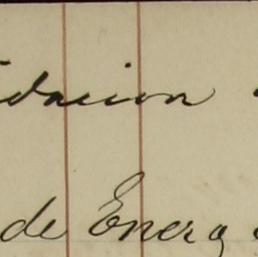 dacion
de Enero